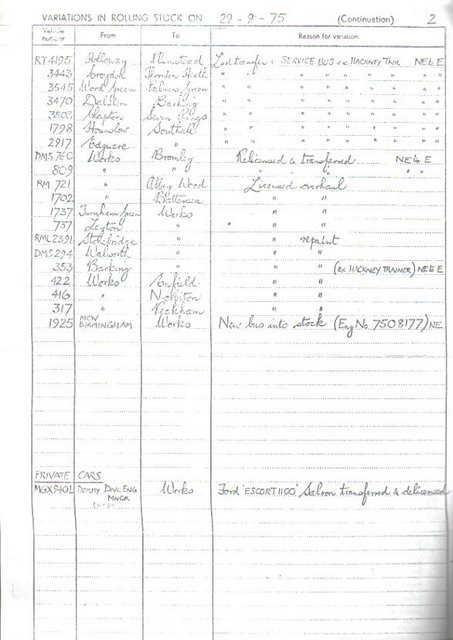 VARIATIONS IN ROLLING STOCK ON 29-9-75 (Continuation) 2
Vehicle number From To Reason for variation
RT 4195 Holloway Plumstead Lic transfer : SERVICE BUS ex HACKNEY TNR NE & E
3443 Croydon Thornton Heath " " " " " " "
3545 Wood Green Palmers Green " " " " " " "
3470 Dalston Barking " " " " " " "
3503 Clapton Seven Kings " " " " " " "
1798 Hounslow Southall " " " " " " "
2917 Edgware " " " " " " " "
DMS 760 Works Bromley Relicensed & transferred NE & E
809 " " " " " "
RM 721 " Abbey Wood Licensed overhaul
1702 " Battersea " "
1737 Turnham Green Works " "
737 Leyton " " " "
RML 2391 Stockbridge " " repaint
DMS 294 Walworth " " "
353 Barking " " " (ex HACKNEY TRAINER) NE & E
422 Works Enfield " "
416 " Norbiton " "
317 " Peckham " "
1925 MCW BIRMINGHAM Works New bus into stock (Eng No 7508177) NE
PRIVATE CARS
MGX 940L DEPUTY DIVL ENG MNGR Works Ford 'ESCORT 1100' Saloon transferred & delicensed